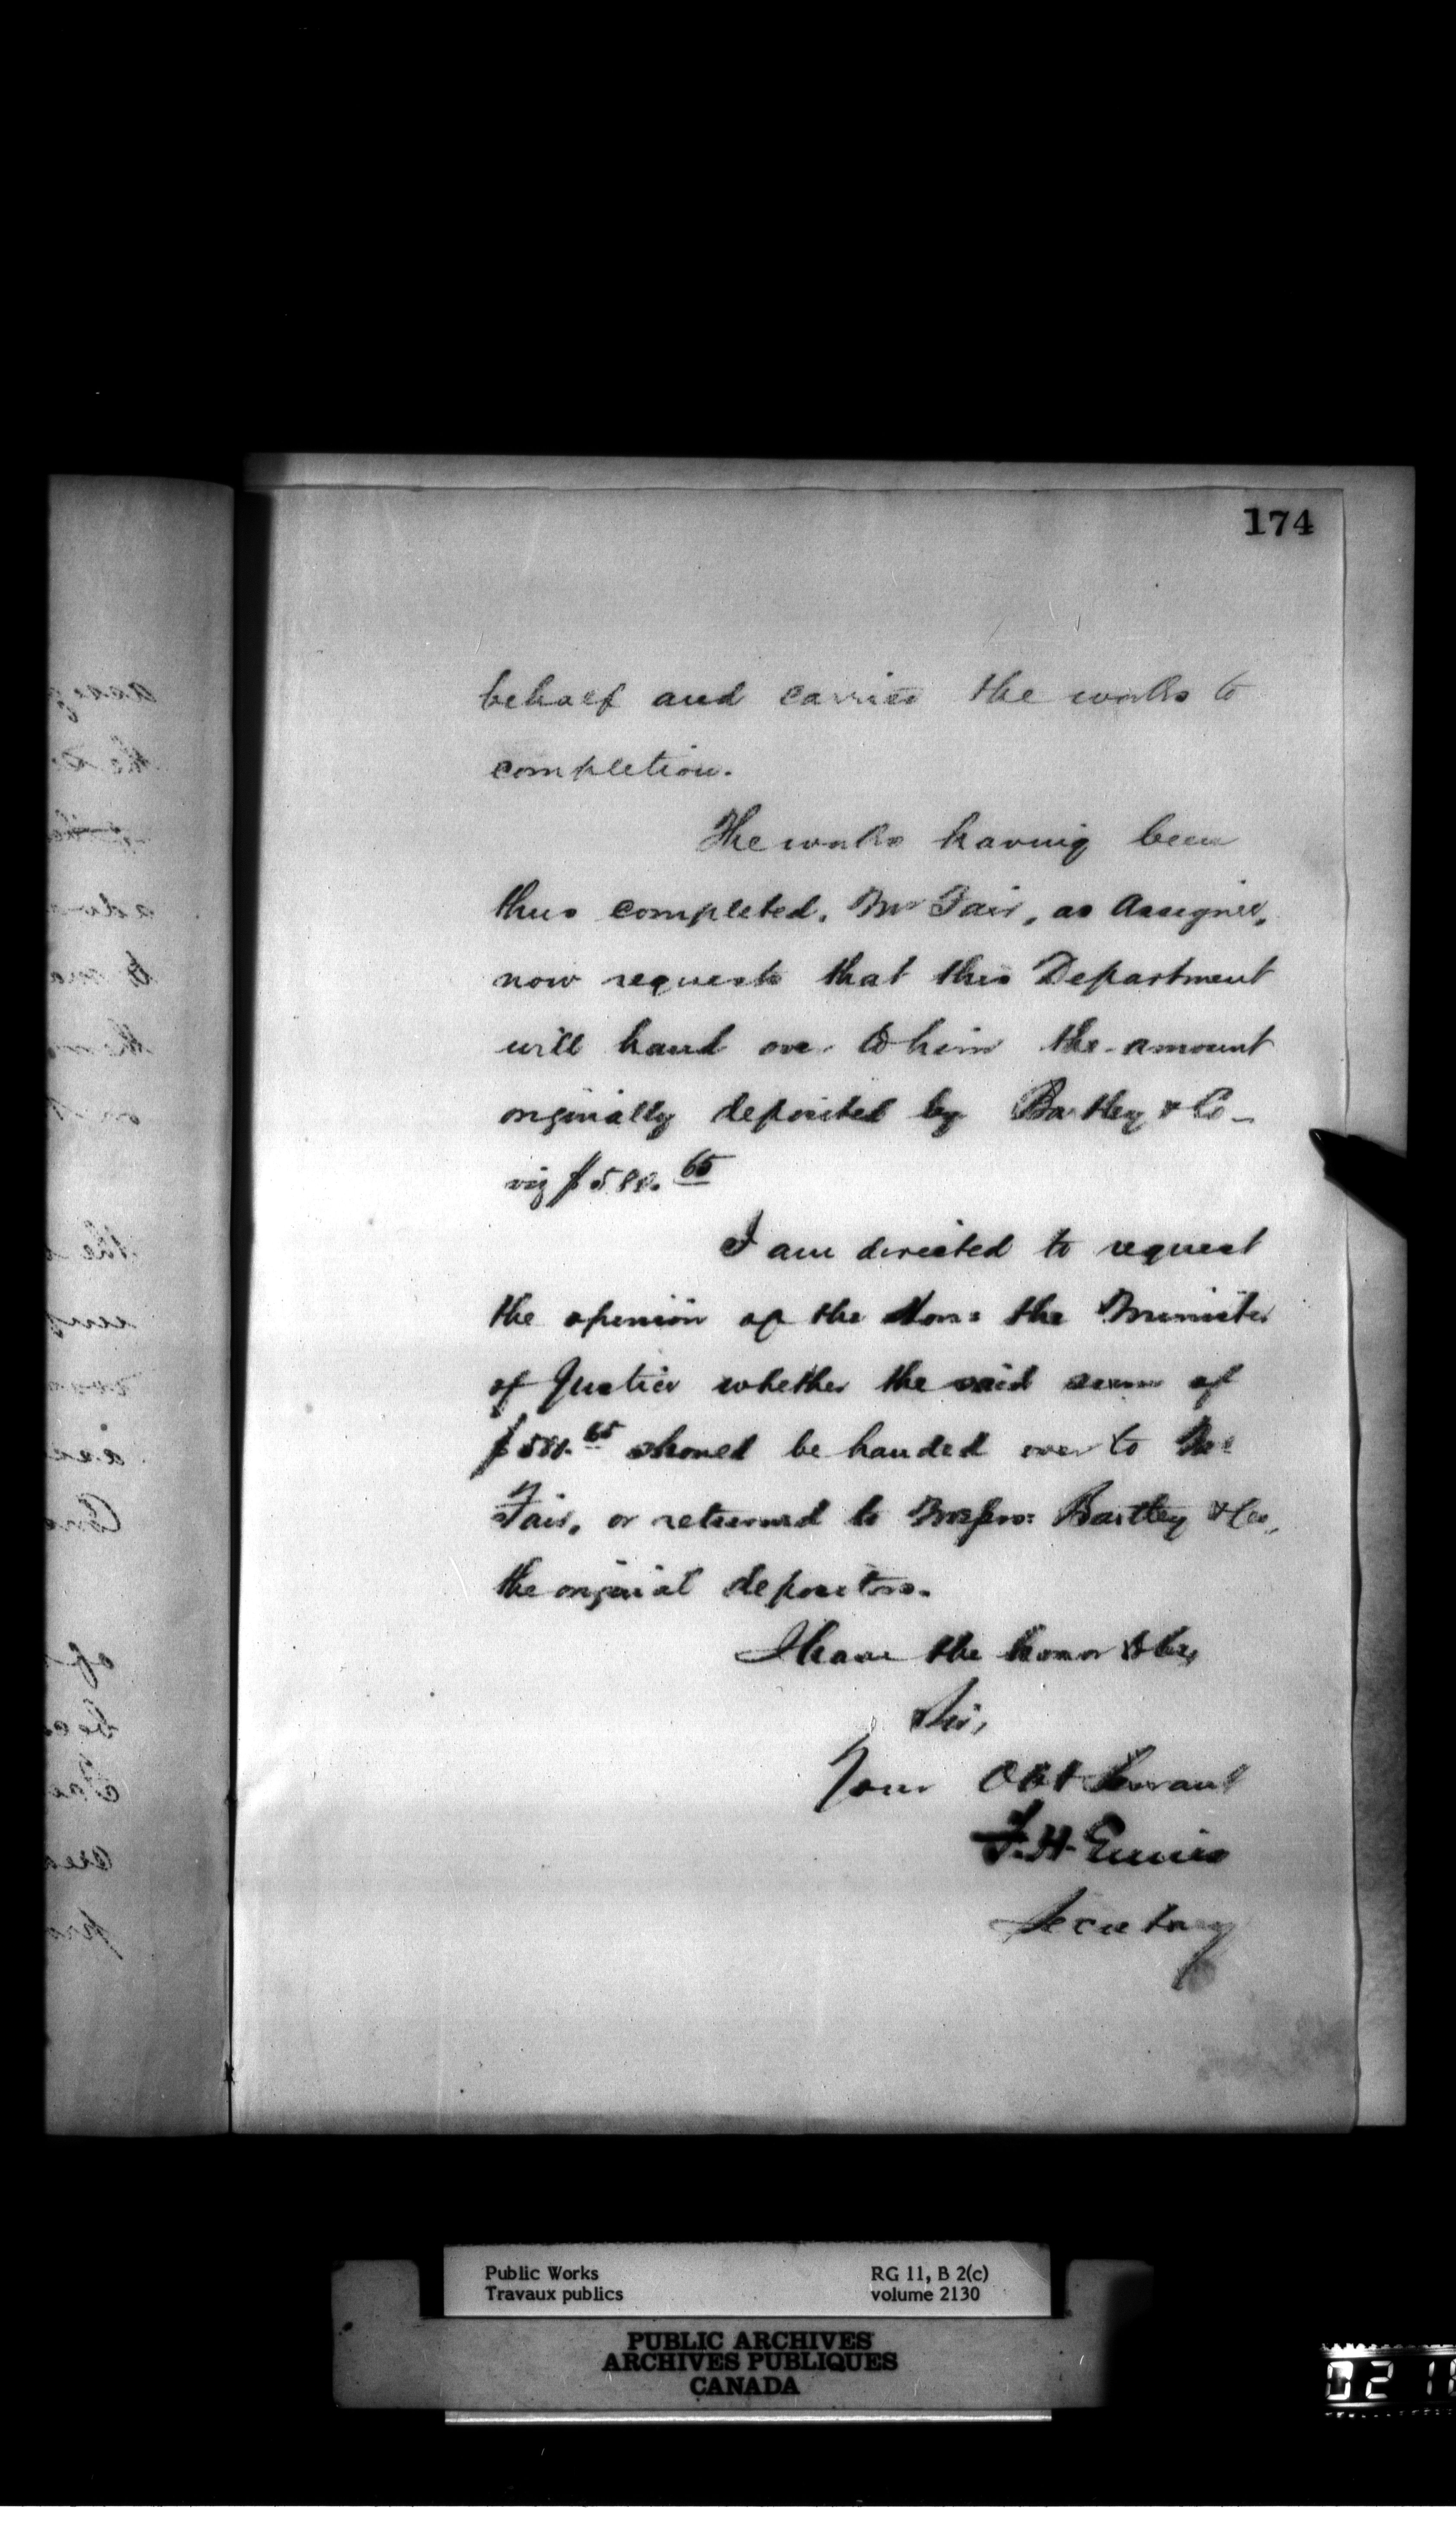 174
behalf and carried the works to
completion.
The works having been
thus completed, Mr Fair, as Assignee,
now requests that this Department
will hand over to him the amount
originally deposited by Bartley & Co -
viz
I am directed to request
the opinion of the Hon: the Minister
of Justice whether the said sum of
should be handed over to Mr
Fair, or returned to Messrs: Bartley & Co,
the original depositors.
I have the honor to be,
Sir,
Your Obt Servant
F. H. Ennis
Secretary
Public Works
Travaux publics
RG 11, B 2(c)
volume 2130
PUBLIC ARCHIVES
ARCHIVES PUBLIQUES
CANADA